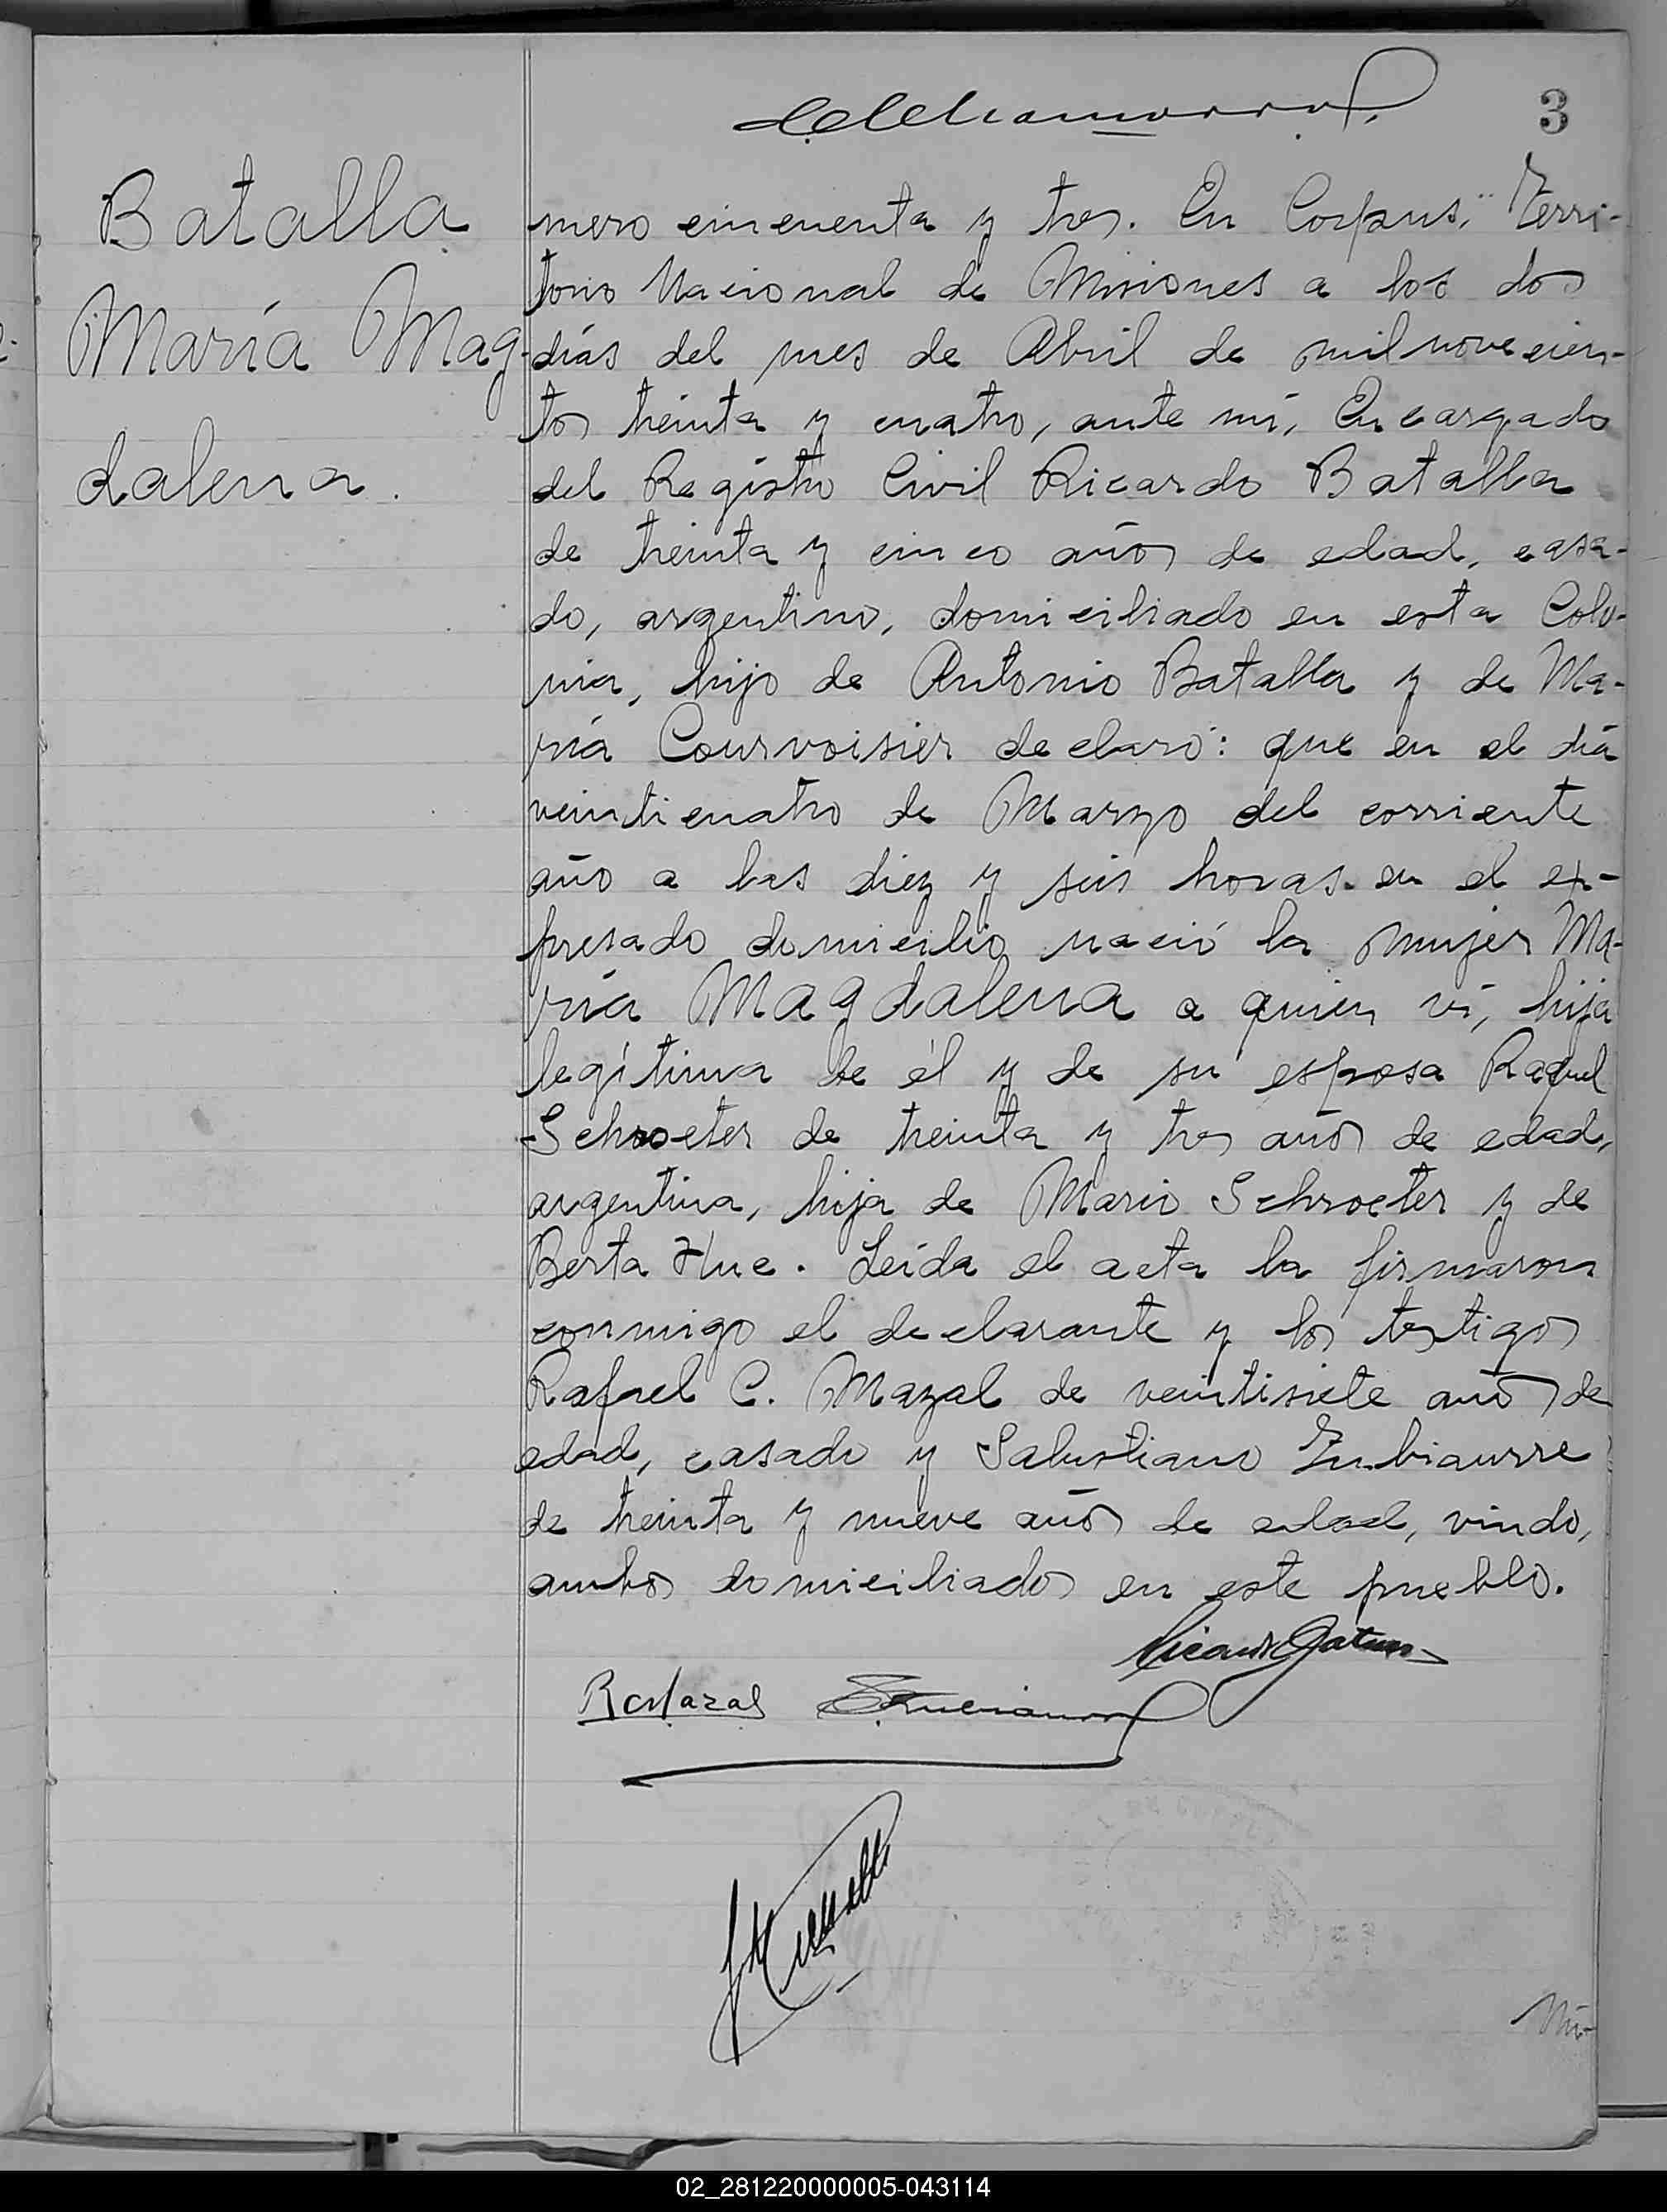 3
Batalla
María Mag-
dalena.
mero cincuenta y tres. En Corpus, Terri-
torio Nacional de Misiones a los dos
días del mes de Abril de mil novecien-
tos treinta y cuatro, ante mí, Encargado
del Registro Civil Ricardo Batalla
de treinta y cinco años de edad, casa-
do, argentino, domiciliado en esta Colo-
nia, hijo de Antonio Batalla y de Ma-
ría Courvoisier declaró: que en el día
veinticuatro de Marzo del corriente
año a las diez y seis horas en el ex-
presado domicilio nació la mujer Ma-
ría Magdalena a quien ví, hija
legítima de él y de su esposa Raquel
Schroeter de treinta y tres años de edad,
argentina, hija de Mario Schroeter y de
Berta Hue. Leída el acta la firmaron
conmigo el declarante y los testigos
Rafael C. Mazal de veintisiete años de
edad, casado y Salustiano Zubiaurre
de treinta y nueve años de edad, viudo,
ambos domiciliados en este pueblo.
RCMazal
Nú-
02_281220000005-043114